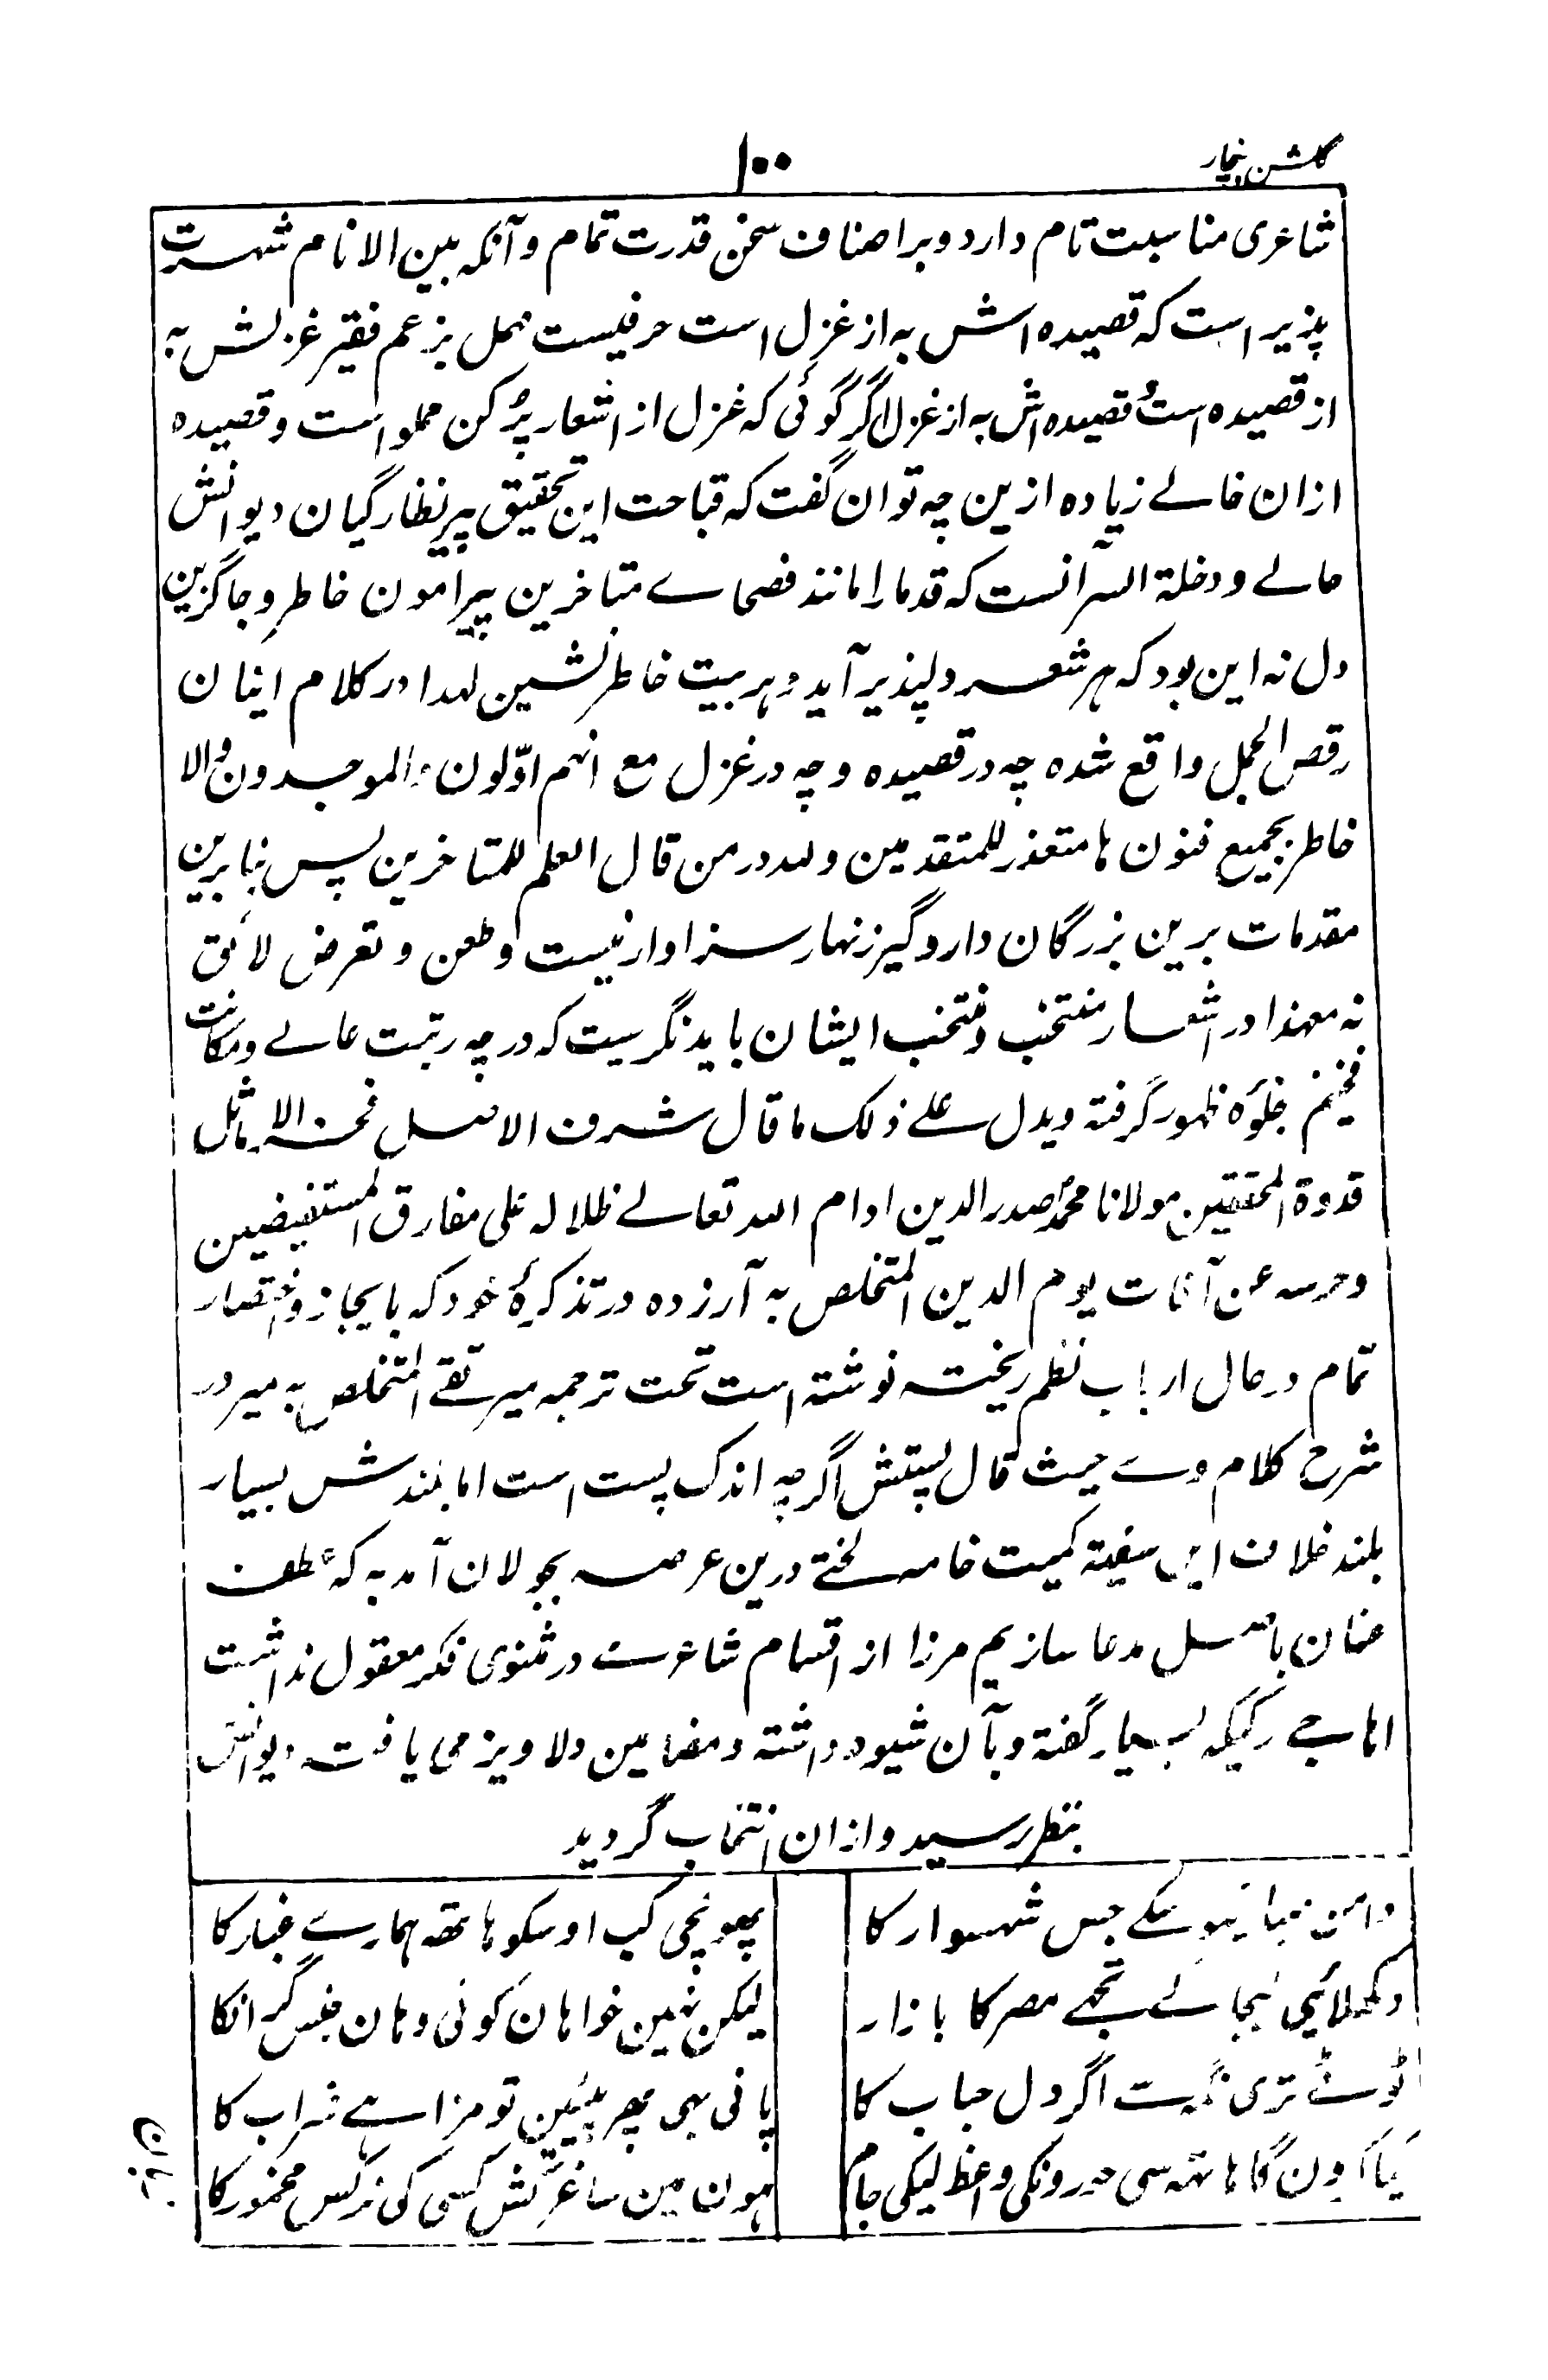 گلشن بیخار
۱۰۰
شاعری مناسبت تام دارد و بر اصناف سخن قدرت تمام و آنکہ بین الانام شہرت
پذیر است کہ قصیدہ اش بہ از غزل است حرفیست مہمل بزعم فقیر غزلش بہ
از قصیدہ است و قصیدہ اش بہ از غزل اگر گوئی کہ غزل از اشعار پُر کن مملو است و قصیدہ
ازان خالے زیادہ ازین چہ توان گفت کہ قباحت این تحقیق بر نظارگیان دیوانش
حالے و دخلۃ السرآنست کہ قدما را مانند فصحاے متاخرین پیرامون خاطر و جاگزین
دل نہ این بود کہ ہر شعر دلپذیر آید و ہر بیت خاطر نشین لہذا در کلام اینان
رقص الجمل واقع شدہ چہ در قصیدہ و چہ در غزل مع انہم اوّلون والموجدون والا
خاطر بجمیع فنون ہا متعذر للمتقدمین و للہ در من قال العلم للمتاخرین پس بنابرین
مقدمات برین بزرگان دار و گیر زنہار سزاوار نیست و طعن و تعرض لائق
نہ معہذا در اشعار منتخب و منتخب ایشان باید نگریست کہ درچہ رتبت عالے و مکانت
فخیم جلوۂ ظہور گرفتہ و یدل علے ذلک ما قال شرف الافاضل فخر الاماثل
قدوۃ المحققین مولانا محمد صدر الدین ادام اللہ تعالے ظلالہ علی مفارق المستفیضین
و حرسہ عن آفات یوم الدین المتخلص بہ آرزدہ در تذکرۂ خود کہ بایجاز و اختصار
تمام در حال ارباب نظم ریختہ نوشتہ است تحت ترجمہ میر تقے المتخلص بہ میر در
شرح کلام وے حیث قال پستش اگرچہ اندک پست است اما بلندش بسیار
بلند خلاف این سفینہ کمیت خامہ لختے درین عرصہ بجولان آمد بہ کہ عطف
عنان باصل مدعا سازیم مرزا از اقسام شاعرے در مثنوی فکر معقول نداشت
اہاجے رکیکہ بسیار گفتہ و بآن شیوہ داشتہ و مضامین دلاویز می یافت دیوانش
بنظر رسید و ازان انتخاب گردید
دامن صبا نہ چھو سکے جس شہسوار کا
پھونچی کب اوسکو ہاتھ ہمارے غبار کا
دکھلائیے لیجا کے تجھے مصر کا بازار
لیکن نہین خواہان کوئی وہان جنس گرانکا
ٹوٹے تری نگہ سے اگر دل حباب کا
پانی بھی پھر پیین تو مزا ہے شراب کا
کیا کرون گا ہاتھ سی حورونکی واعظ لیکی جام
ہون مین ساغر کش کسی کی نرگس مخمور کا